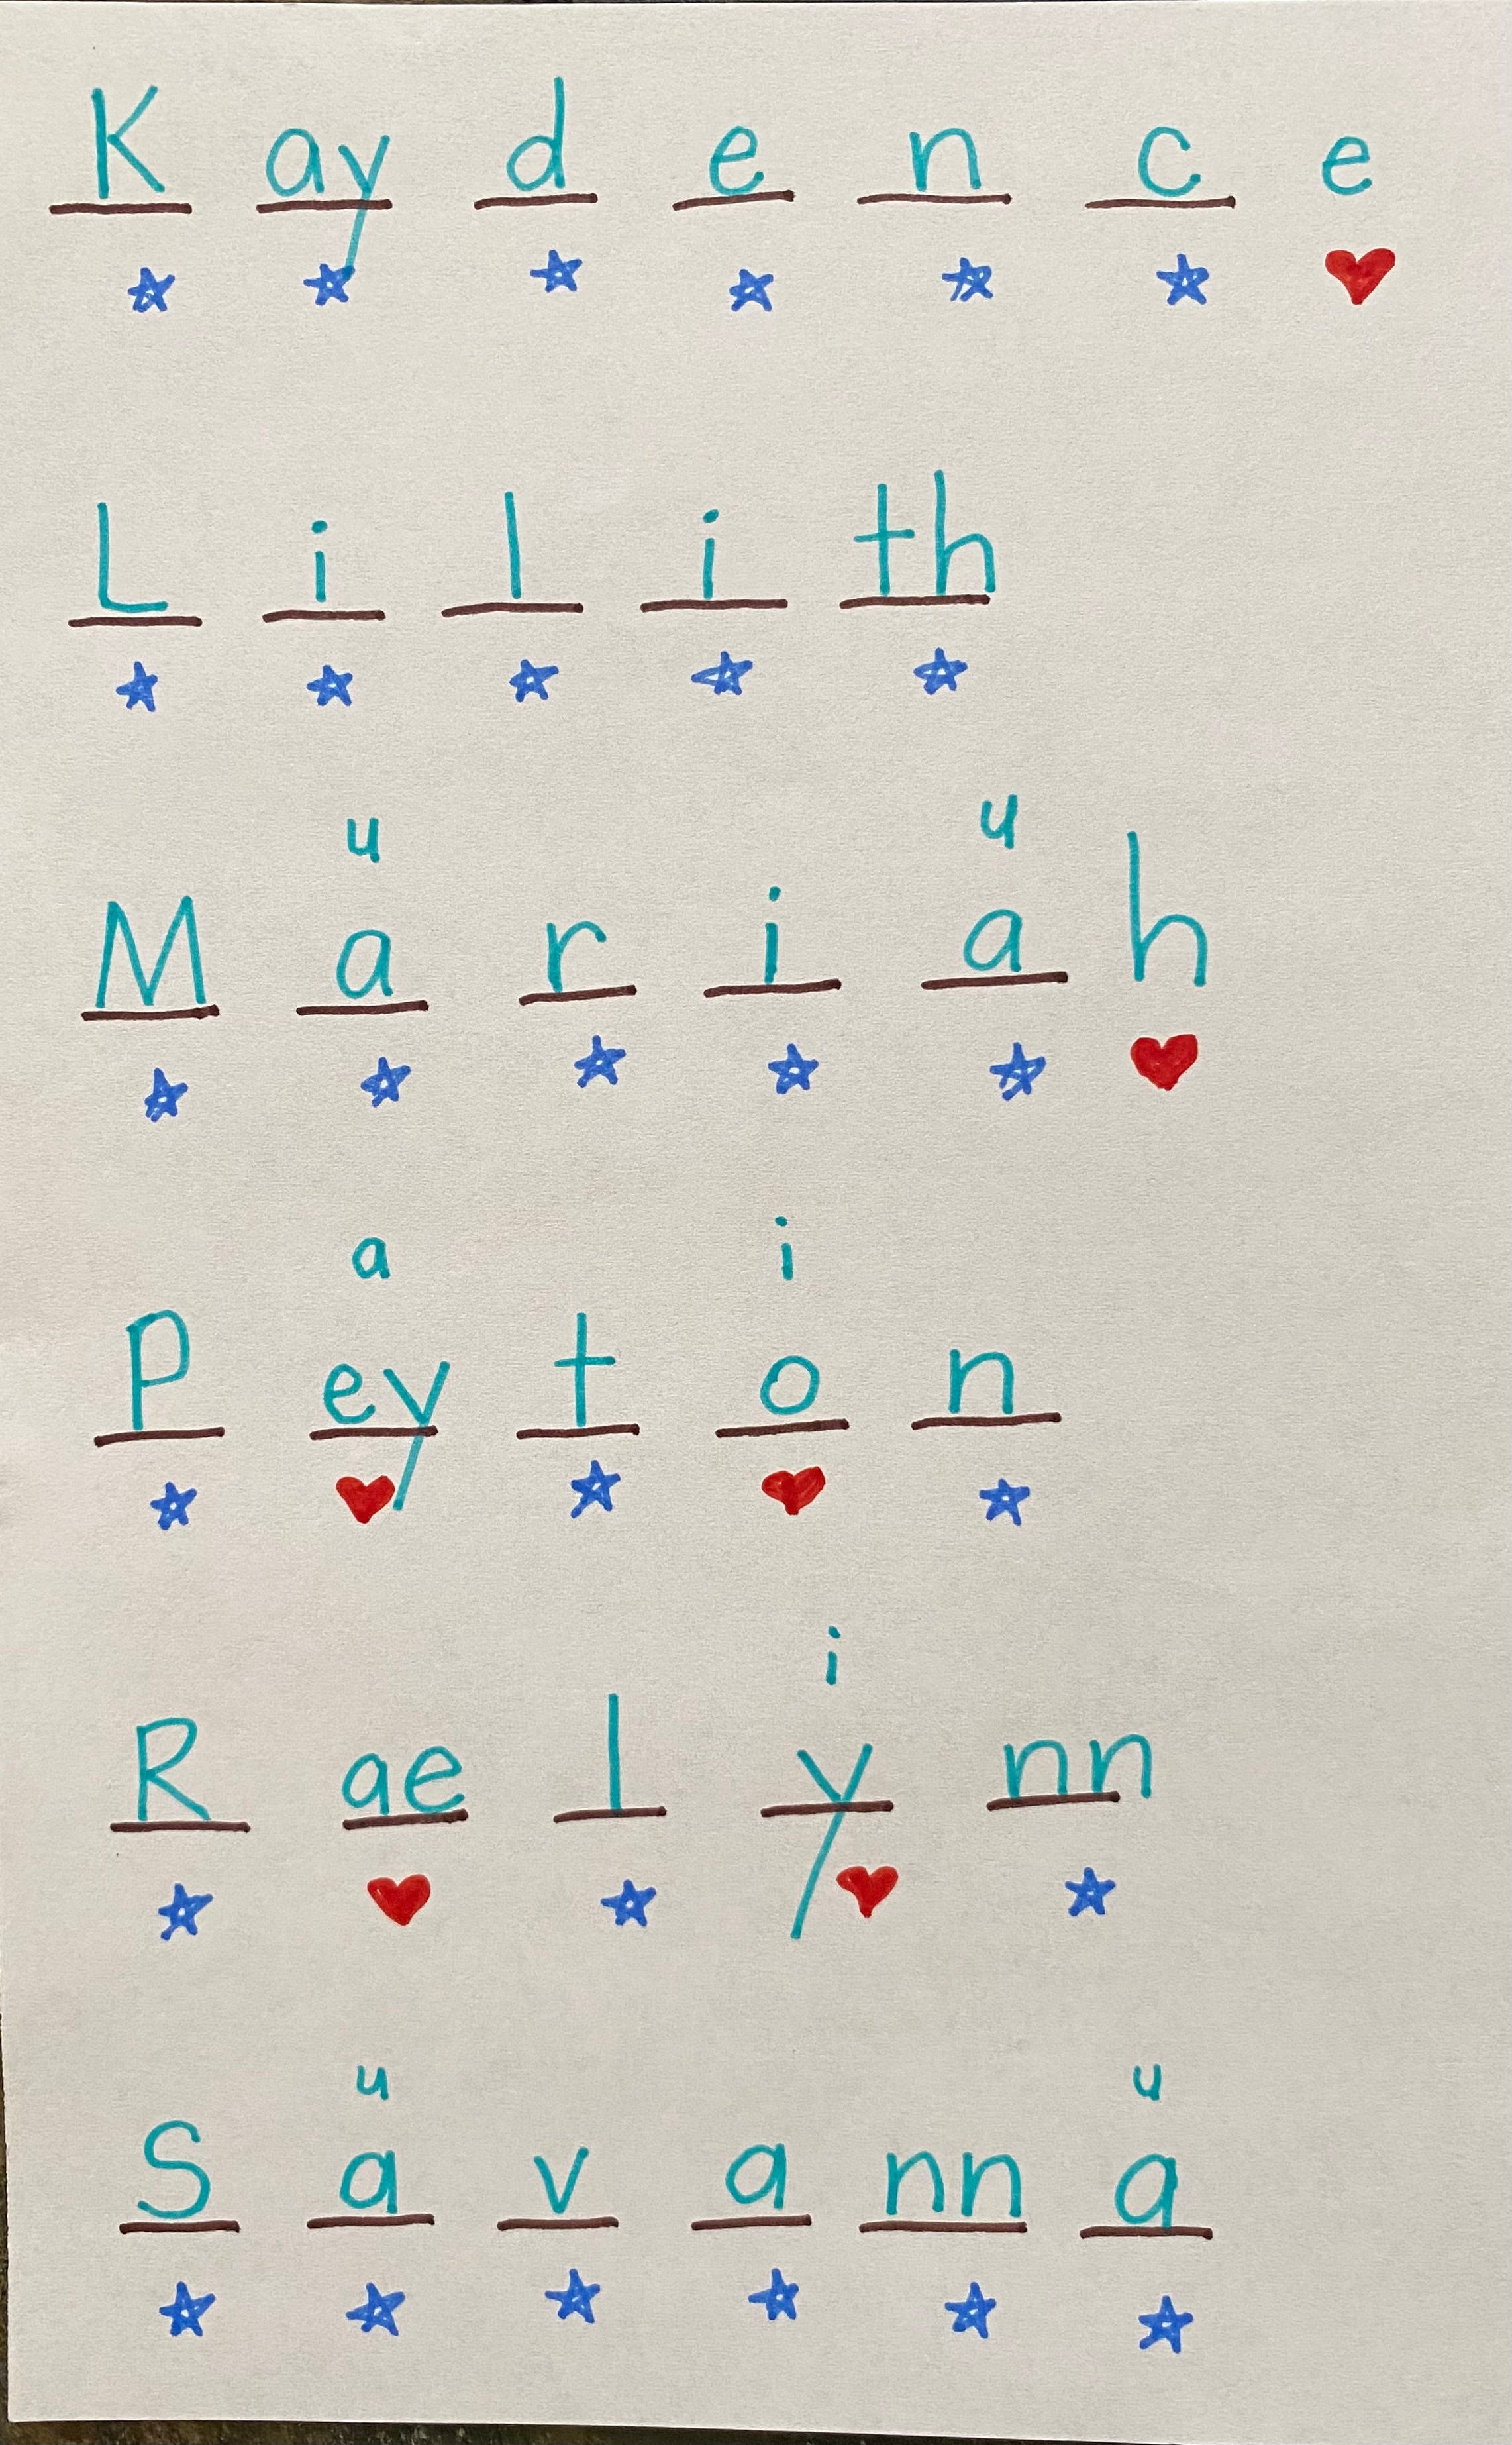 K ay d e n c e
L i l i th
u u
M a r i a h
a i
P ey t o n
i
R ae l y nn
u u
S a v a nn a